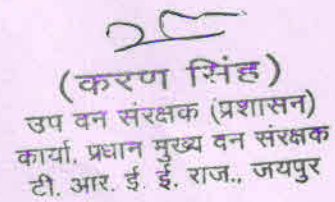 (करण सिंह)
उप वन संरक्षक (प्रशासन)
कार्या. प्रधान मुख्य वन संरक्षक
टी. आर. ई. ई. राज., जयपुर